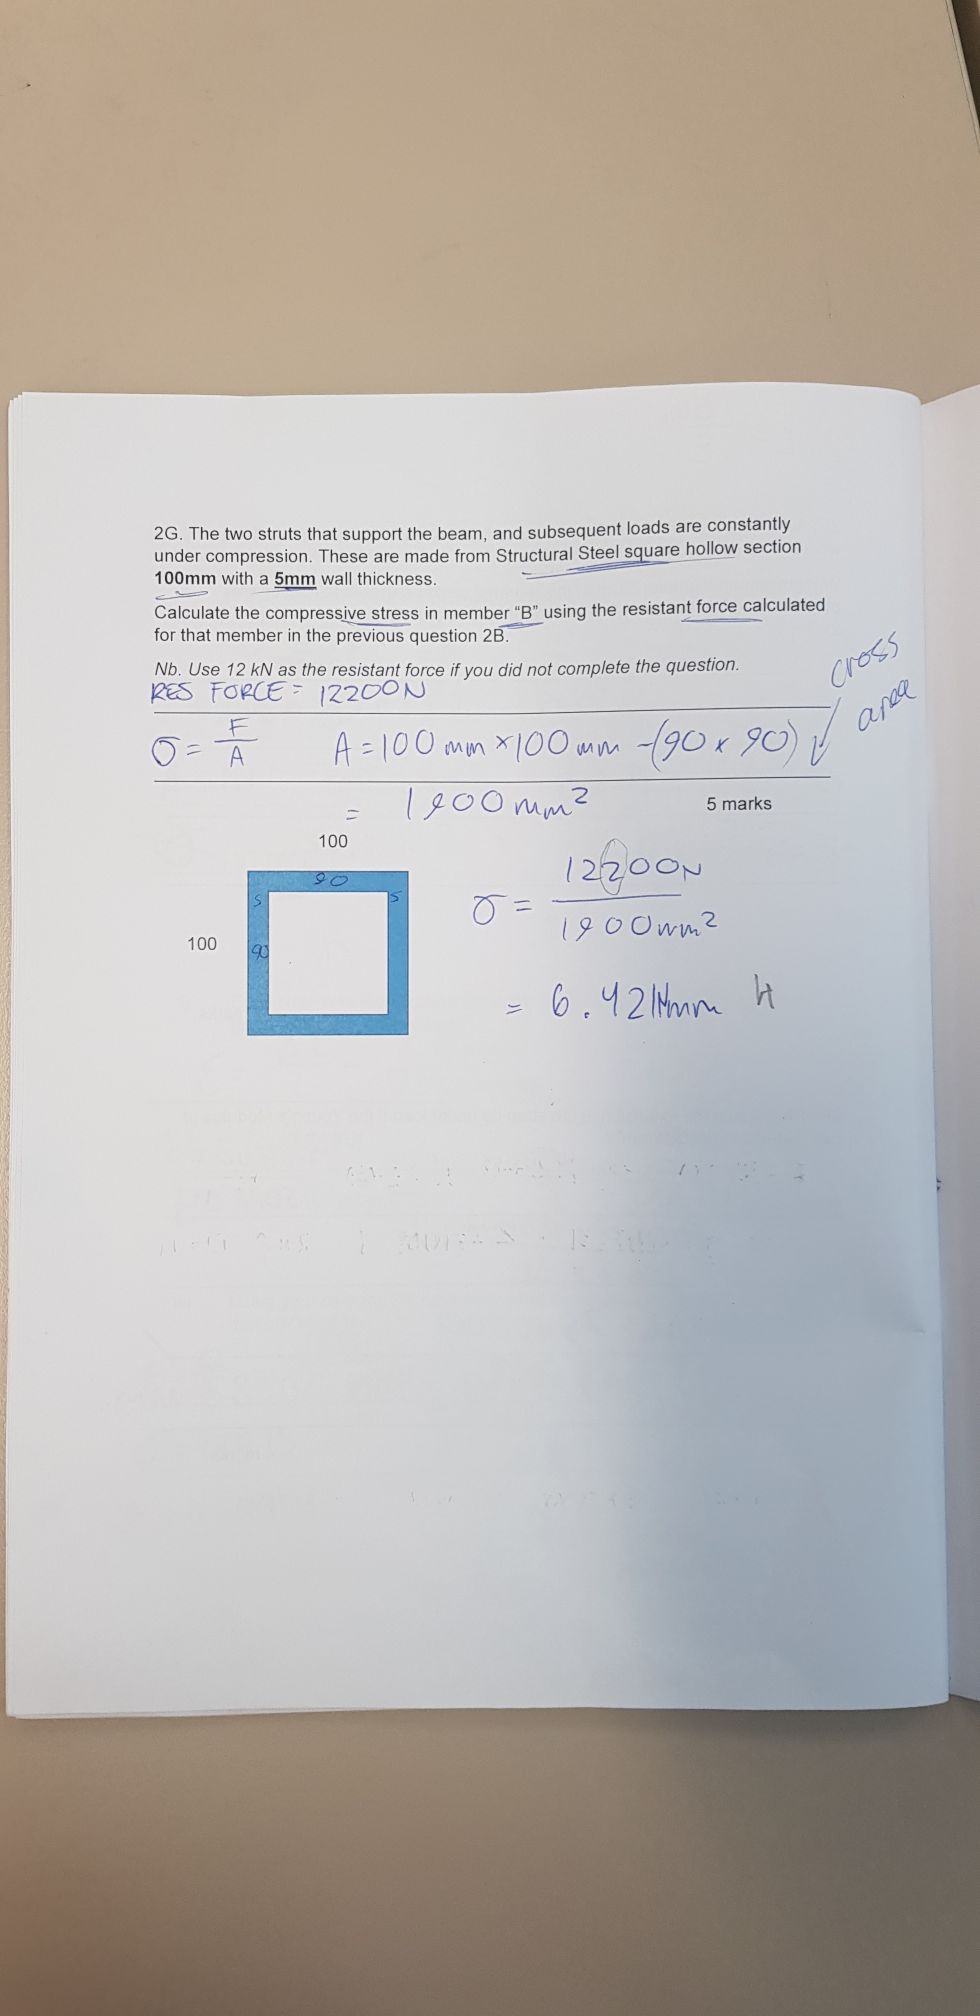 2G. The two struts that support the beam, and subsequent loads are constantly
under compression. These are made from Structural Steel square hollow section
100mm with a 5mm wall thickness.
Calculate the compressive stress in member “B” using the resistant force calculated
for that member in the previous question 2B.
Nb. Use 12 kN as the resistant force if you did not complete the question.
RES FORCE = 12200N
cross
area
σ = F/A A = 100mm × 100mm -(90 × 90)
= 1900mm²
5 marks
100
90
5 5
100
90
σ = 12200N / 1900mm²
= 6.421Nmm